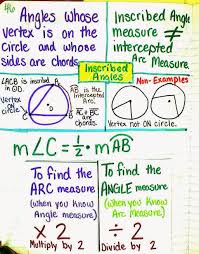 46
Angles whose
vertex is on the
circle and whose
sides are chords.
Inscribed Angle
measure ≠
intercepted
Arc Measure.
Inscribed
Angles
∠ACB is inscribed
in ⊙D.
Vertex
on
circle
C
A
D
B
AB is the
Intercepted
Arc.
AC & BC
are
chords.
Non-Examples
Vertex not on circle.
m∠C = 1/2 · mAB
To find the
ARC measure
(when you know
Angle measure)
× 2
Multiply by 2
To find the
ANGLE measure
(when you know
Arc Measure)
÷ 2
Divide by 2